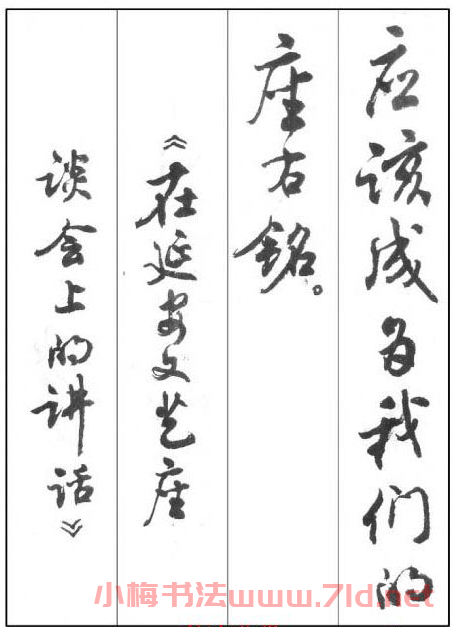 应该成为我们的
座右铭。
《在延安文艺座
谈会上的讲话》
小梅书法www.7ld.net